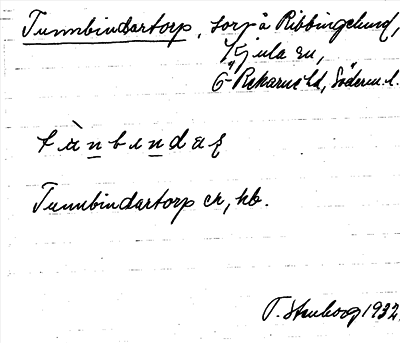 Tunnbindartorp, torp å Ribbingelund,
Kjula sn,
Ö-Rekarne hd, Söderm. l.
Tunnbindartorp ek, hb.
T. Stenborg 1932